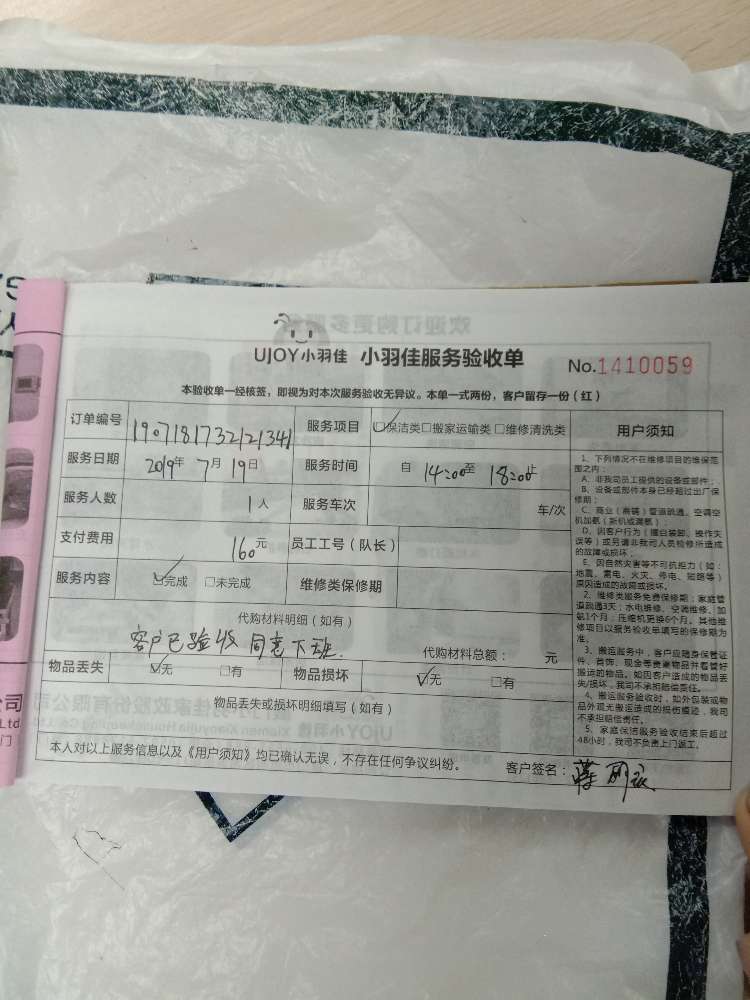 UJOY小羽佳 小羽佳服务验收单 No.1410059
本验收单一经核签，即视为对本次服务验收无异议。本单一式两份，客户留存一份（红）
订单编号 190718173212134 服务项目 ☑保洁类□搬家运输类□维修清洗类 用户须知
服务日期 2019年 7月 19日 服务时间 自 14:00至 18:00止
服务人数 1人 服务车次 车/次
支付费用 160元 员工工号（队长）
服务内容 ☑完成 □未完成 维修类保修期
代购材料明细（如有）
客户已验收 同意下班. 代购材料总额： 元
物品丢失 ☑无 □有 物品损坏 ☑无 □有
物品丢失或损坏明细填写（如有）
本人对以上服务信息以及《用户须知》均已确认无误，不存在任何争议纠纷。 客户签名：
1、下列情况不在维修项目的维保范
围之内：
A、非我司员工提供的设备或部件；
B、设备或部件本身已经超过出厂保
修期；
C、商业（商铺）管道疏通、空调空
机加氨（新机或漏氨）；
D、因客户行为（擅自装卸、操作失
误等）或另请非我司人员检修所造成
的故障或损坏。
E、因自然灾害等不可抗拒力（如：
地震、雷电、火灾、停电、短路等）
原因造成的故障或损坏。
2、维修类服务免费保修期：家庭管
道疏通3天；水电维修、空调维修、加
氨1个月；压缩机更换6个月。其他维
修项目以服务验收单填写的保修期为
准。
3、搬运服务中，客户应随身保管证
件、首饰、现金等贵重物品并看管好
搬运的物品。如因客户造成的物品丢
失/损坏，我司不承担赔偿责任。
4、搬运服务验收时，如外包装或物
品外观无搬运造成的损伤痕迹，我司
不承担赔偿责任。
5、家庭保洁服务验收结束后超过
48小时，我司不负责上门返工。
公司
Ltd.
门